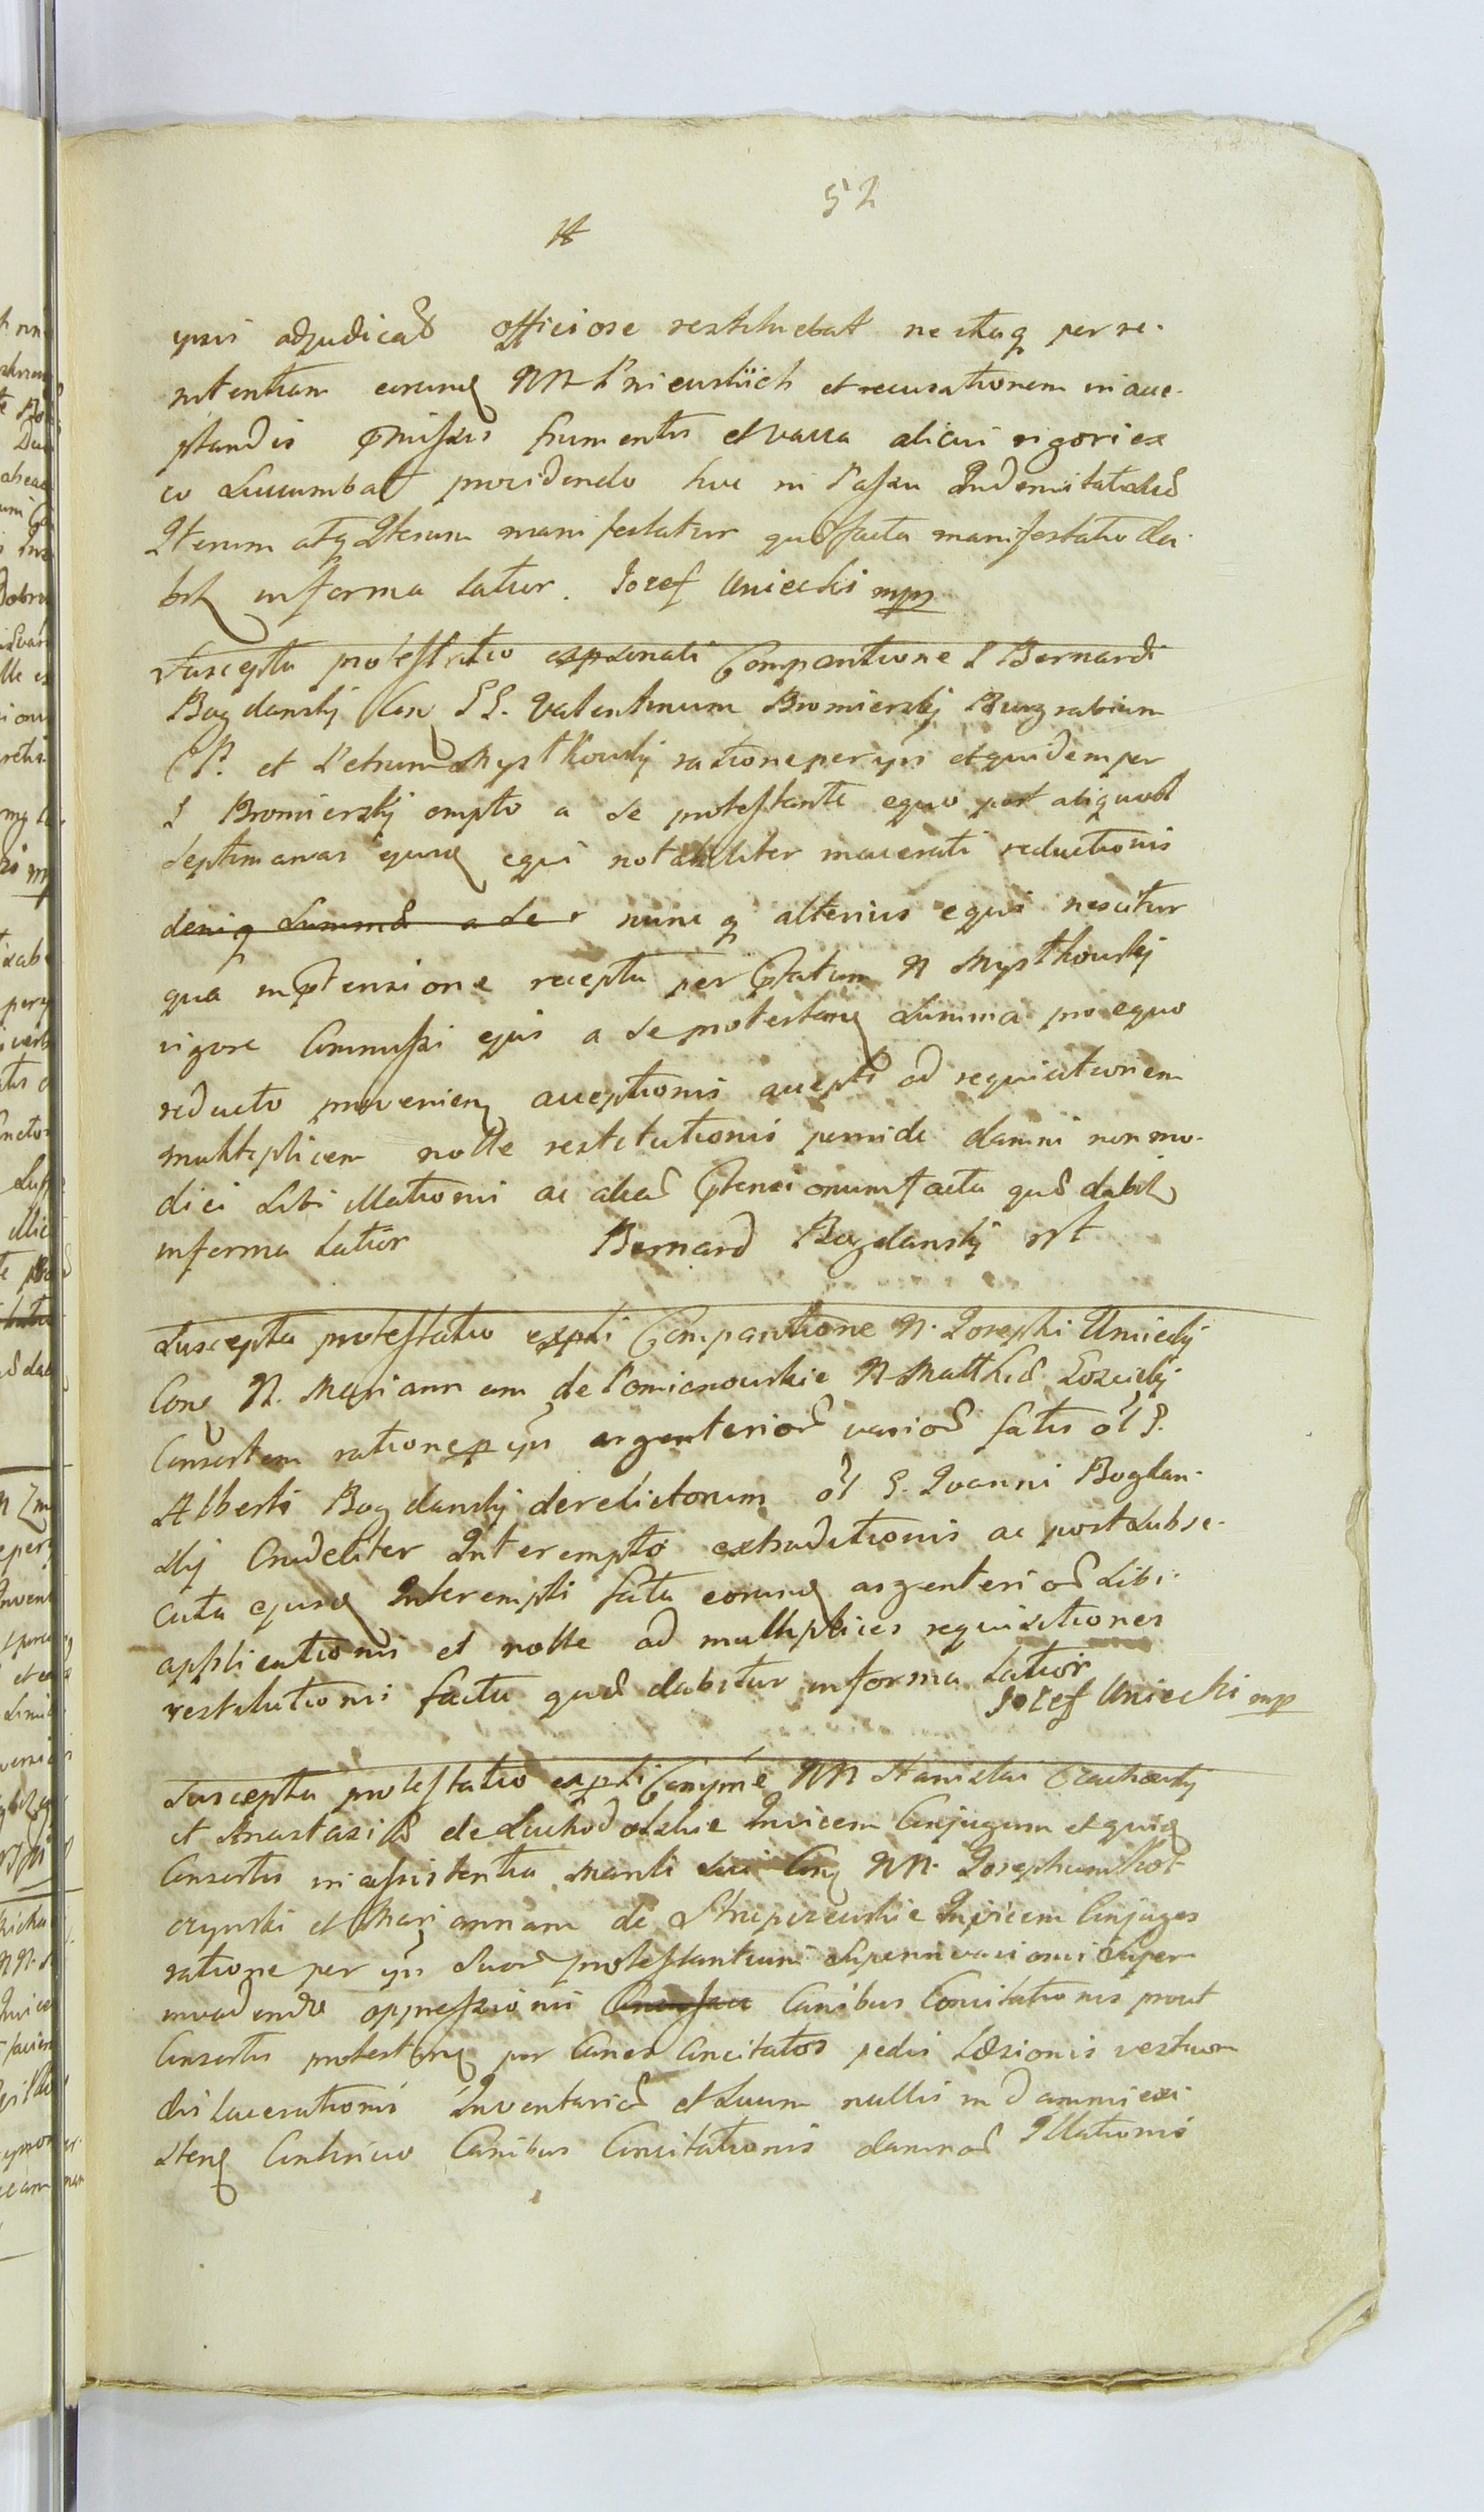 52
ysis adjudicat officiose restituebat ne itaq per re-
nitentiam eorunq NN Pniewskich et recusationem in acce-
ptandis pmissis frumentis et vacca alicui rigori ex
eo succumbat providendo huc in Passu Indemnitati suæ
Iterum atq Iterum manifestatur quæ facta manifestatio da-
bit in forma latior. Jozef Uniecki mpp
Suscepta protestatio expsonati Comparitione S Bernardi
Bogdanskj Con SS. Valentinum Bromierskj Burgrabium
CP. et Petrum Mystkowskj ratione per ysi et quidem per
S Bromierskj empto a se protestante equo post aliquot
Septimanas ejusq equi notabiliter macerati reductionis
deniq summæ a se r nunc q alterius equi nescitur
qua in ptensione recepta per ptatum N Mystkowskj
vigore Commissi ejus a se protestanq summa pro equo
reducto provenienq acceptionis acceptæ ad requisitionem
multiplicem nolle restitutionis perinde damni non mo-
dici sibi illationis ac aliaR ptensionum facta quæ dabit
in forma latior Bernard Bogdanskj mp
Suscepta protestatio expti Comparitione N. Josephi Unieckj
Conq N. Mariannam de Pomianowskie N Matthiæ Łozickj
Consortem ratione p ysi argenterioR varioR fatis ol S.
Alberti Bogdanskj derelictorum ol S. Joanni Bogdan-
skj Crudeliter Interempto extraditionis ac post subse-
cuta ejusq Interempti fata eorunq argenterioR sibi
applicationis et nolle ad multiplices requisitiones
restitutionis facta quæ dabitur in forma latior
Jozef Uniecki mp
Suscepta protestatio expti Compne NN Stanislai Czachowskj
et Anastasiæ de Suchodolskie Invicem Conjugum et quidq
Consortis in assistentia Mariti sui Conq NN. Josephum Kot
czynski et Mariannam de Strupczewskie Invicem Conjuges
ratione per ysi suoR protestantium Supennivaci omi Super
invadendo oppressionis Canibus Concitationis prout
Consortis protestanq per Canes Concitatos pedis Læsionis vestium
dis lacerationis InventarioR et suum nullis in Damni exi-
stenq Continuo Canibus Concitationis damnoR Illationis